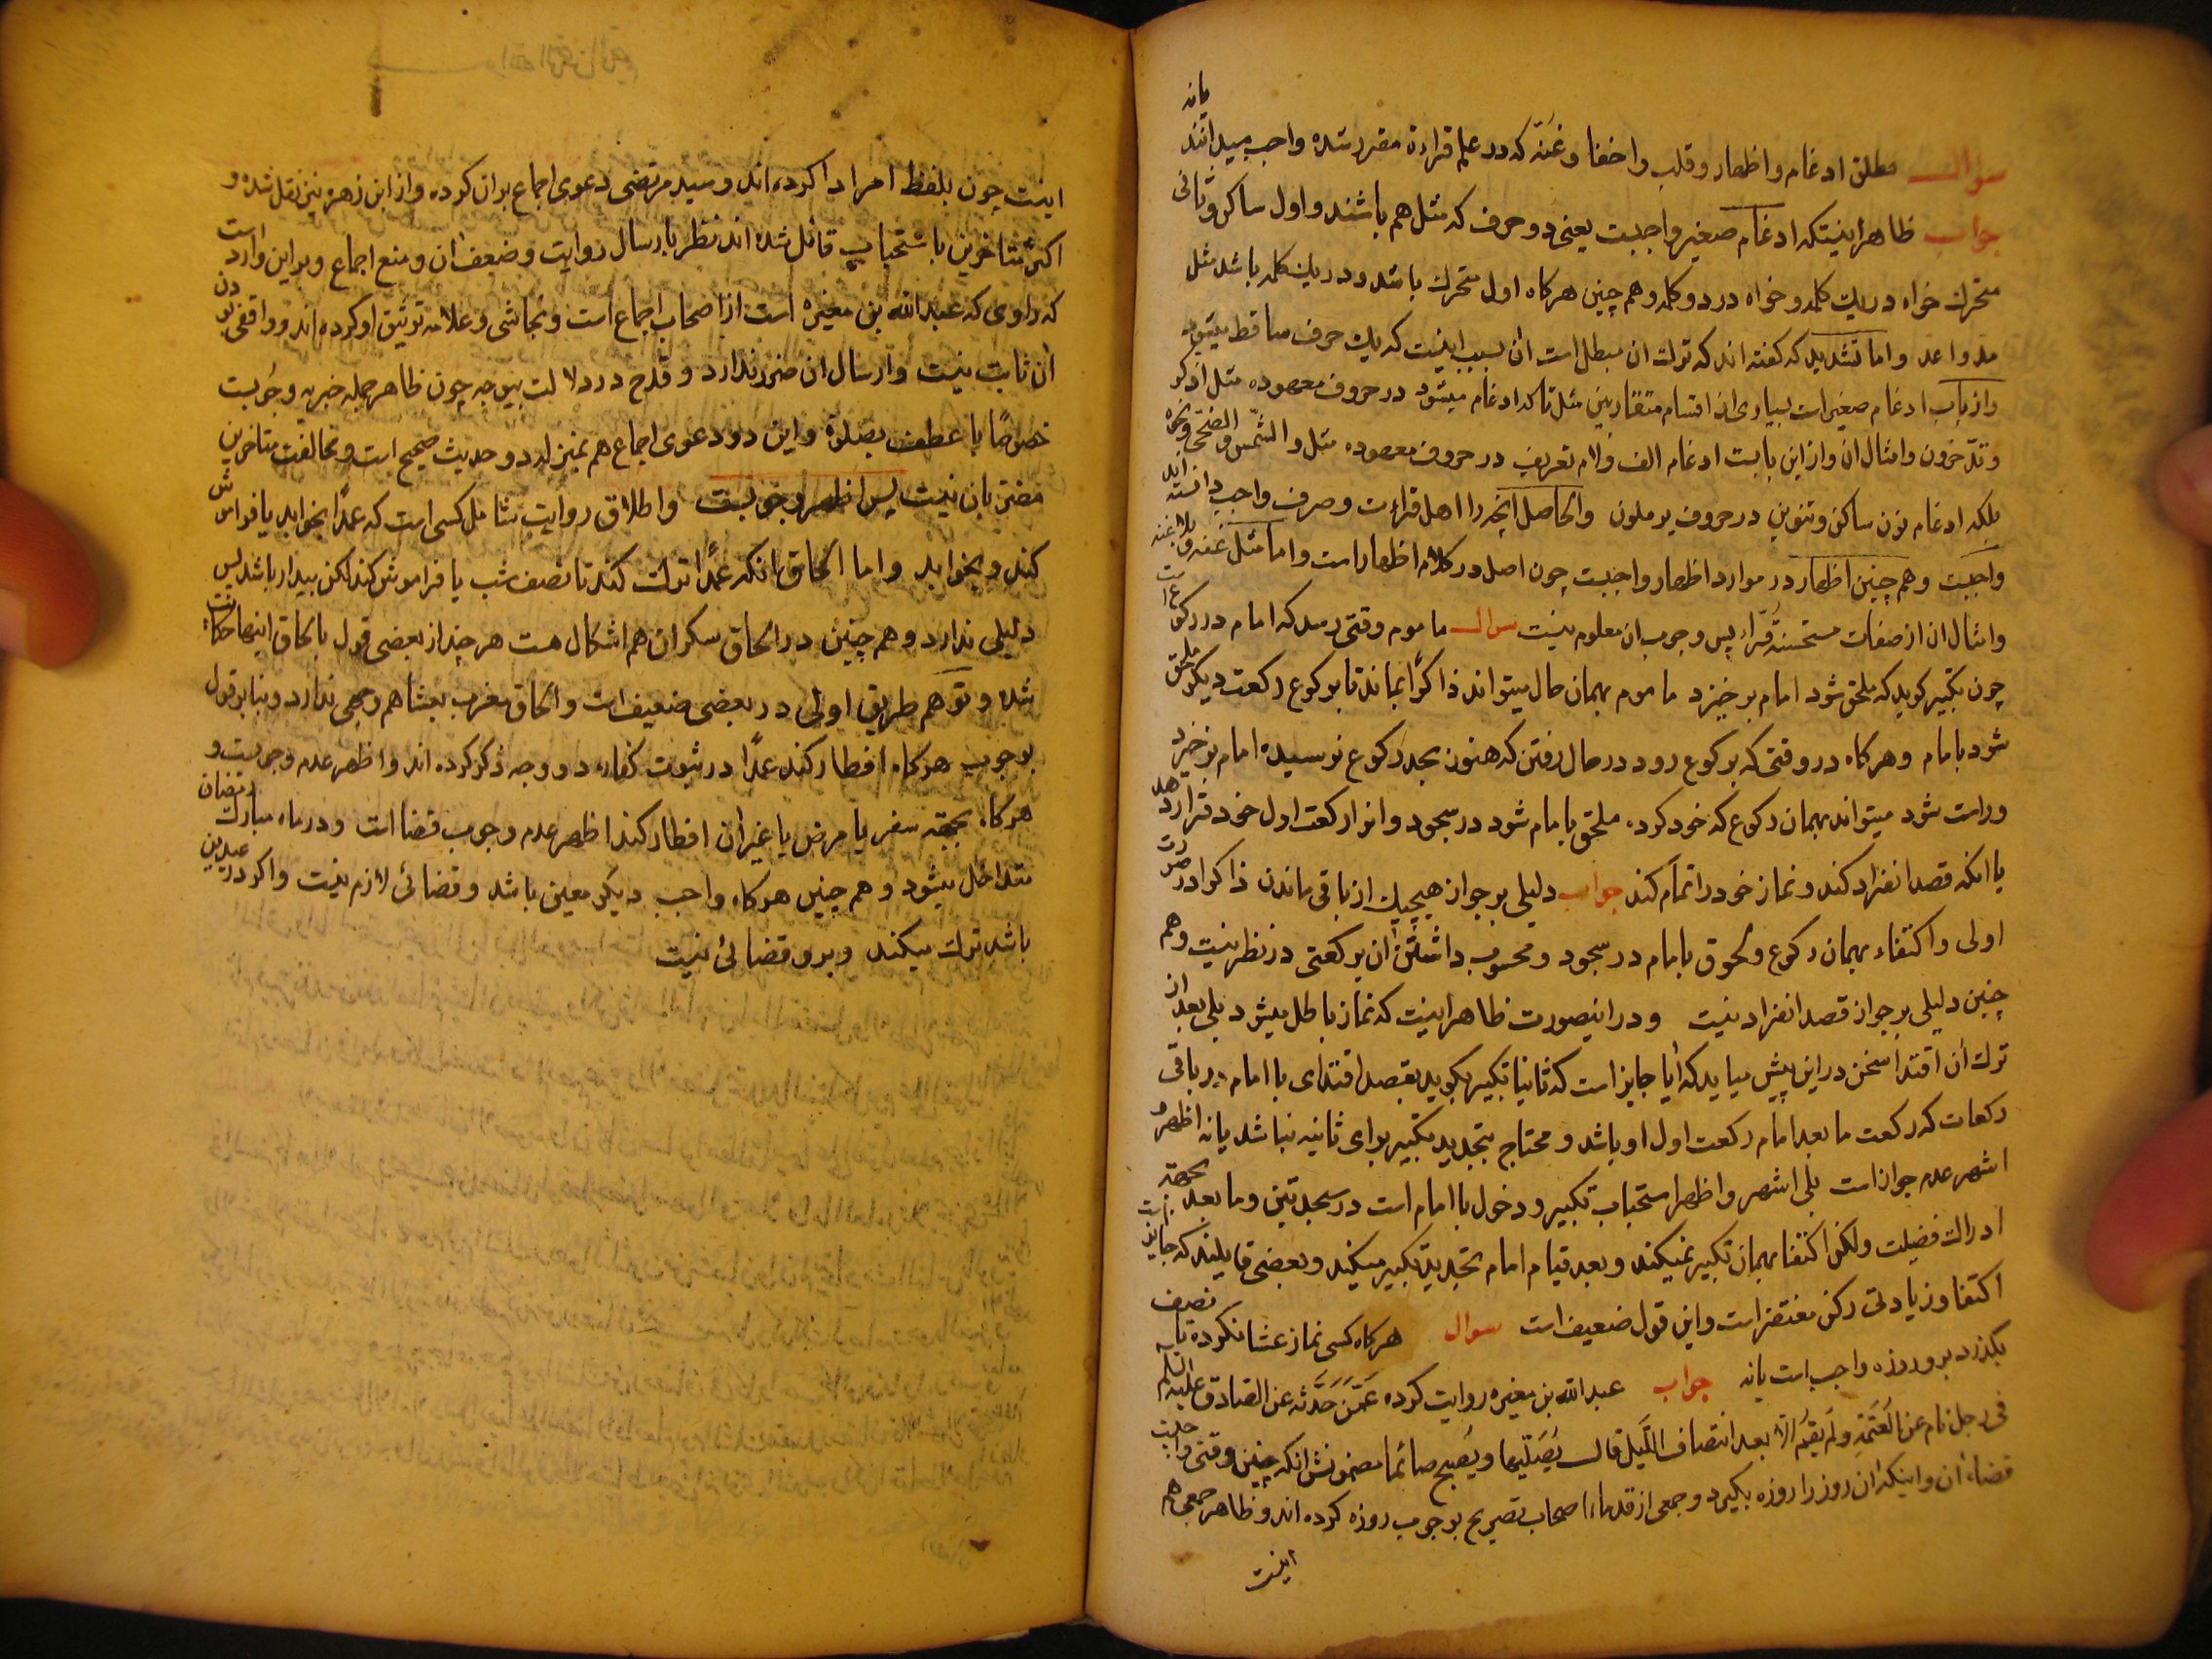 سؤال مطلق ادغام و اظهار و قلب و اخفا و غنّه که در علم قراءة مقرر شده واجب میدانند یا نه
جواب ظاهر اینستکه ادغام صغیر واجبست یعنی دو حرف که مثل هم باشند و اول ساکن و ثانی
متحرك خواه در یك کلمه و خواه در دو کلمه و هم چنین هرکاه اول متحرك باشد و در یك کلمه باشد مثل
مد و اعد و اما تشدید که کفته اند که ترك ان مبطل است ان بسبب اینست که یك حرف ساقط میشود
و از باب ادغام صغیر است بسیاری از اقسام متقاربین مثل تا که ادغام میشود در حروف معهوده مثل ادّکر
و تدّخرون و امثال ان و از این بابت ادغام الف و لام تعریف در حروف معهوده مثل و الشّمس و الضّحی و نحوه
بلکه ادغام نون ساکن و تنوین در حروف یرملون و الحاصل انچه را اهل قراءت و صرف واجب دانسته اند
واجبست و هم چنین اظهار در موارد اظهار واجبست چون اصل در کلام اظهار است و اما مثل غنه و بلا غنه
و امثال ان از صفات مستحسنهٔ قرّاء پس وجوب ان معلوم نیست سوال ماموم وقتی رسد که امام در رکوع است
چون تکبیر کوید که ملحق شود امام بر خیزد ماموم بهمان حال میتواند ذاکرًا بماند تا برکوع رکعت دیکر ملحق
شود بامام و هرکاه در وقتی که برکوع رود در حال رفتن که هنوز بحد رکوع نرسیده امام بر خیزد
و راست شود میتواند بهمان رکوع که خود کرده ملحق بامام شود در سجود و انرا رکعت اول خود قرار دهد
یا انکه قصد انفراد کند و نماز خود را تمام کند جواب دلیلی بر جواز هیچیك از باقی ماندن ذاکرا در صورت
اولی و اکتفاء بهمان رکوع و لحوق بامام در سجود و محسوب داشتن ان برکعتی در نظر نیست و هم
چنین دلیلی بر جواز قصد انفراد نیست و در اینصورت ظاهر اینست که نماز باطل میشود بلی بعد از
ترك ان اقتدا سخن در این پیش میاید که ایا جایز است که ثانیا تکبیر بکوید بقصد اقتدای با امام در باقی
رکعات که رکعت ما بعد امام رکعت اول او باشد و محتاج بتجدید تکبیر برای ثانیه نباشد یا نه اظهر و
اشهر عدم جواز است بلی اشهر و اظهر استحباب تکبیر و دخول با امام است در سجدتین و ما بعد بجهة
ادراك فضیلت و لکن اکتفا بهمان تکبیر نمیکند و بعد قیام امام تجدید تکبیر میکند و بعضی قایلند که جایز است
اکتفا و زیادتی رکن مغتفر است و این قول ضعیف است سوال هرکاه کسی نماز عشا نکرده تا نصف
بکذرد بر و روزه واجب است یا نه جواب عبد الله بن مغیره روایت کرده عَمَّن حَدَّثه عن الصّادق علیه السّلم
فی رجل نام عن العَتَمَة و لَم یَقُم الّا بعد انتصاف اللّیل قال یُصَلّیها و یُصبح صائما مضمونش انکه چنین وقتی واجبست
قضاء ان و اینکه ان روز را روزه بکیرد و جمعی از قدماء اصحاب تصریح بوجوب روزه کرده اند و ظاهر جمعی هم
اینست
اینست چون بلفظ امر ادا کرده اند و سید مرتضی دعوی اجماع بر ان کرده و از ابن زهره نیز نقل شده و
اکثر متاخرین باستحباب قائل شده اند نظر بارسال روایت و ضعف ان و منع اجماع و بر این وارد است
که راوی که عبد الله بن مغیره است از اصحاب اجماع است و نجاشی و علامه توثیق او کرده اند و واقفی بودن
ان ثابت نیست و ارسال ان ضرر ندارد و قدح در دلالت بیوجه چون ظاهر جمله خبریه وجوبست
خصوصًا با عطف بصلوة و این دو دعوی اجماع هم بمنزله دو حدیث صحیح است و مخالفت متاخرین
مضرّ بان نیست پس اظهر وجوبست و اطلاق روایت شامل کسی است که عمدًا بخوابد یا فراموش
کند و بخوابد و اما الحاق انکه عمدًا ترك کند تا نصف شب یا فراموش کند لکن بیدار باشد پس
دلیلی ندارد و هم چنین در الحاق سکران هم اشکال هست هر چند از بعضی قول بالحاق اینها حکایت
شده و توهم طریق اولی در بعضی ضعیف است و الحاق مغرب بعشا هم وجهی ندارد و بنا بر قول
بوجوب هرکاه افطار کند عمدًا در ثبوت کفاره دو وجه ذکر کرده اند و اظهر عدم وجوبست و
هرکاه بجهة سفر یا مرض یا غیر ان افطار کند اظهر عدم وجوب قضا است و در ماه مبارك رمضان
متداخل میشود و هم چنین هرکاه واجب دیکر معین باشد و قضائی لازم نیست و اکر در عیدین
باشد ترك میکند و بر و قضائی نیست